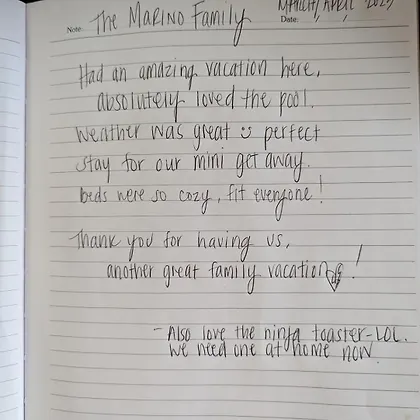 Note: The MARINO Family
Date: MARCH/APRIL 2023
Had an amazing vacation here,
absolutely loved the pool.
Weather was great perfect
stay for our mini get away.
beds were so cozy, fit everyone!
Thank you for having us,
another great family vacation!
- Also love the ninja toaster-LOL.
we need one at home now.